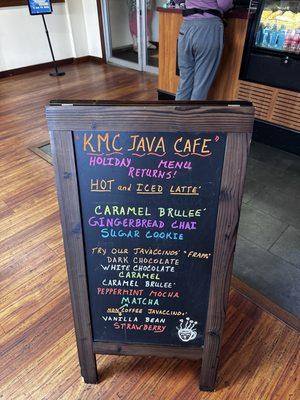 KMC JAVA CAFE
HOLIDAY MENU
RETURNS!
HOT and ICED LATTE
CARAMEL BRULEE
GINGERBREAD CHAI
SUGAR COOKIE
TRY OUR JAVACCINOS "FRAPA"
DARK CHOCOLATE
WHITE CHOCOLATE
CARAMEL
CARAMEL BRULEE
PEPPERMINT MOCHA
MATCHA
NON COFFEE JAVACCINO
VANILLA BEAN
STRAWBERRY